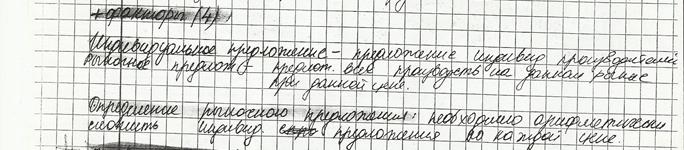 + факторы (4)
Индивидуальное предложение – предложение индивид производителей
рыночное предлож предлож. всех производ на данном рынке
при данной цене.
Определение рыночного предложения: необходимо арифметически
сложить индивид. предложения по каждой цене.